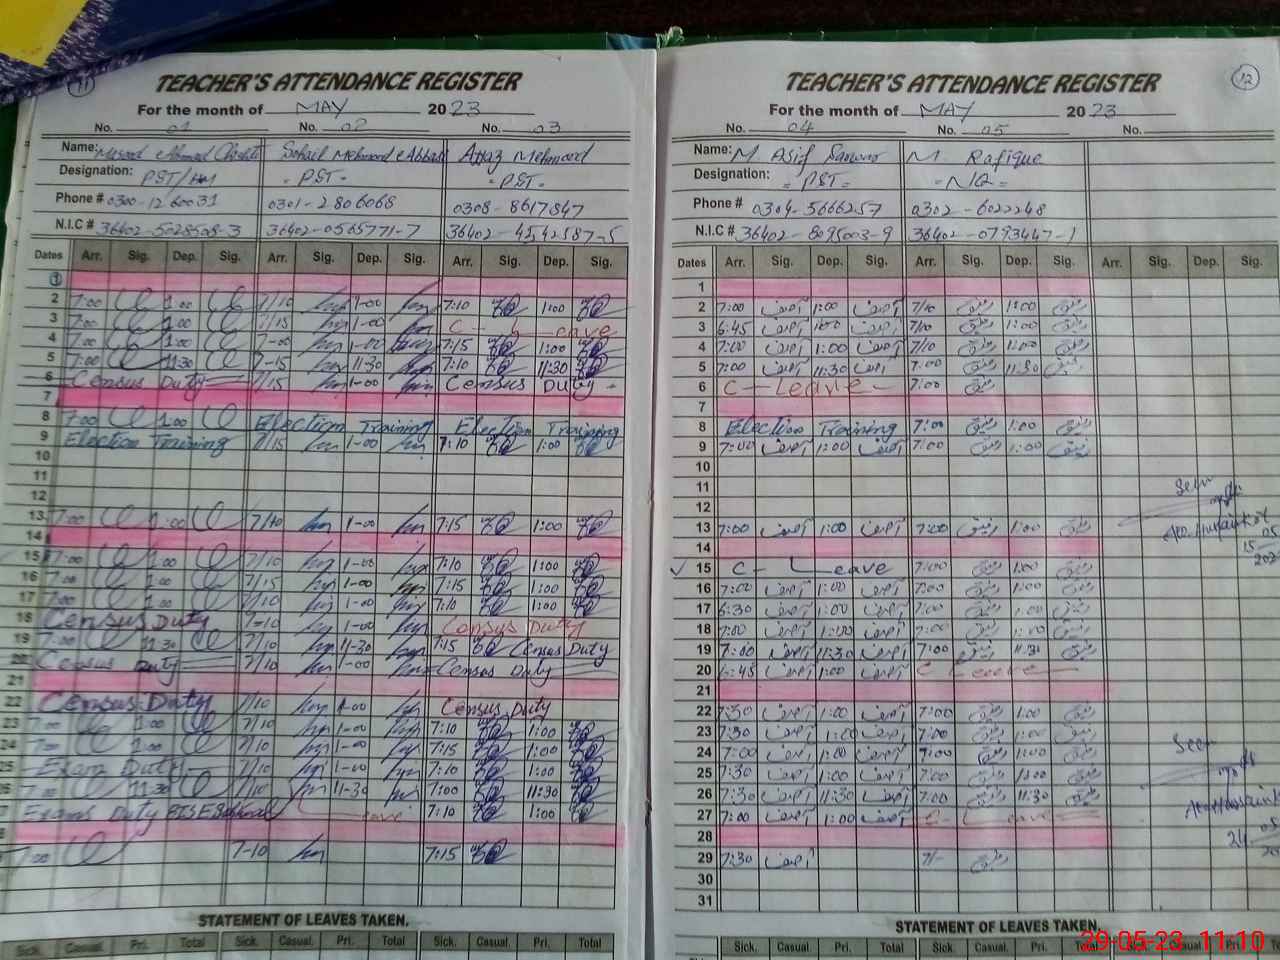 11
TEACHER'S ATTENDANCE REGISTER
For the month of MAY 2023
No. 01 No. 02 No. 03
Name: Ahmad Sohail Mehmood Mehmood
Designation: PST/HM - PST - - PST -
Phone # 0300-1260031 0301-2806068 0308-8617847
N.I.C # 36402-5028508-3 36402-0565771-7 36402-4542587-5
Dates Arr. Sig. Dep. Sig. Arr. Sig. Dep. Sig. Arr. Sig. Dep. Sig.
1
2 7:00 1:00 7/10 1-00 7:10 1:00
3 7:00 1:00 7/15 1-00 C - Leave
4 7:00 1:00 7-00 1-00 7:15 1:00
5 7:00 11:30 7-15 11-30 7:10 11:30
6 Census Duty 7/15 1-00 Census Duty
7
8 7:00 1:00 Election Training Election Training
9 Election Training 7/15 1-00 7:10 1:00
10
11
12
13 7:00 1:00 7/10 1-00 7:15 1:00
14
15 7:00 1:00 7/10 1-00 7:10 1:00
16 7:00 1:00 7/15 1-00 7:15 1:00
17 7:00 1:00 7/10 1-00 7:10 1:00
18 Census Duty 7-10 1-00 Census Duty
19 7:00 11:30 7/10 11-30 7:15 Census Duty
20 Census Duty 7/10 1-00 Census Duty
21
22 Census Duty 7/10 1-00 Census Duty
23 7:00 1:00 7/10 1-00 7:10 1:00
24 7:00 1:00 7/10 1-00 7:15 1:00
25 Exam Duty 7/10 1-00 7:10 1:00
26 7:00 11:30 7/10 11-30 7:00 11:30
Exams Duty BISE Leave 7:10 1:00
7:00 7-10 7:15
STATEMENT OF LEAVES TAKEN.
Sick. Casual. Pri. Total Sick. Casual. Pri. Total Sick. Casual. Pri. Total
12
TEACHER'S ATTENDANCE REGISTER
For the month of MAY 2023
No. 04 No. 05 No.
Name: M. Asif Sarwar M. Rafique
Designation: = PST = = NQ =
Phone # 0304-5666257 0302-6022248
N.I.C # 36402-8095003-9 36402-0793447-1
Dates Arr. Sig. Dep. Sig. Arr. Sig. Dep. Sig. Arr. Sig. Dep. Sig.
1
2 7:00 آصف 1:00 آصف 7/10 رفیق 1:00 رفیق
3 6:45 آصف 1:00 آصف 7/00 رفیق 1:00 رفیق
4 7:00 آصف 1:00 آصف 7/10 رفیق 1:00 رفیق
5 7:00 آصف 11:30 آصف 7:00 رفیق 11:30 رفیق
6 C - Leave - 7:00 رفیق
7
8 Election Training 7:00 رفیق 1:00 رفیق
9 7:00 آصف 1:00 آصف 7:00 رفیق 1:00 رفیق
10
11 Seen
12
13 7:00 آصف 1:00 آصف 7:00 رفیق 1:00 رفیق
14 15 05
15 C - Leave 7:00 رفیق 1:00 رفیق
16 7:00 آصف 1:00 آصف 7:00 رفیق 1:00 رفیق
17 6:30 آصف 1:00 آصف 7:00 رفیق 1:00 رفیق
18 7:00 آصف 1:00 آصف 7:00 رفیق 1:00 رفیق
19 7:00 آصف 11:30 آصف 7:00 رفیق 11:30 رفیق
20 6:45 آصف 1:00 آصف C Leave
21
22 7:30 آصف 1:00 آصف 7:00 رفیق 1:00 رفیق
23 7:30 آصف 1:00 آصف 7:00 رفیق 1:00 رفیق
24 7:00 آصف 1:00 آصف 7:00 رفیق 1:00 رفیق Seen
25 7:30 آصف 1:00 آصف 7:00 رفیق 1:00 رفیق
26 7:30 آصف 11:30 آصف 7:00 رفیق 11:30 رفیق
27 7:00 آصف 1:00 آصف C - Leave
28 24 05
29 7:30 آصف 7/- رفیق
30
31
STATEMENT OF LEAVES TAKEN.
Sick. Casual. Pri. Total Sick. Casual. Pri. Total Sick. Casual. Pri.
29-05-23 11:10